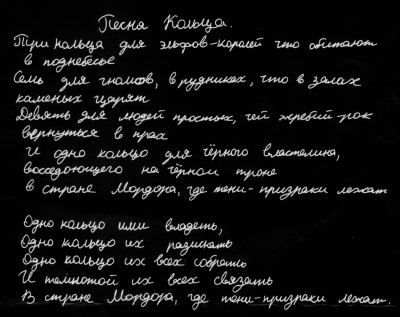 Песня Кольца.
Три кольца для эльфов-королей что обитают
в поднебесье
Семь для гномов, в рудниках, что в залах
каменых царят
Девять для людей простых, чей жребий-рок
вернуться в прах
И одно кольцо для чёрного властелина,
воседоющего на чёрном троне
в стране Мордора, где тени-призраки лежат
Одно кольцо ими владеть,
Одно кольцо их разискать
Одно кольцо их всех собрать
И темнотой их всех связать
В стране Мордора, где тени-призраки лежат.